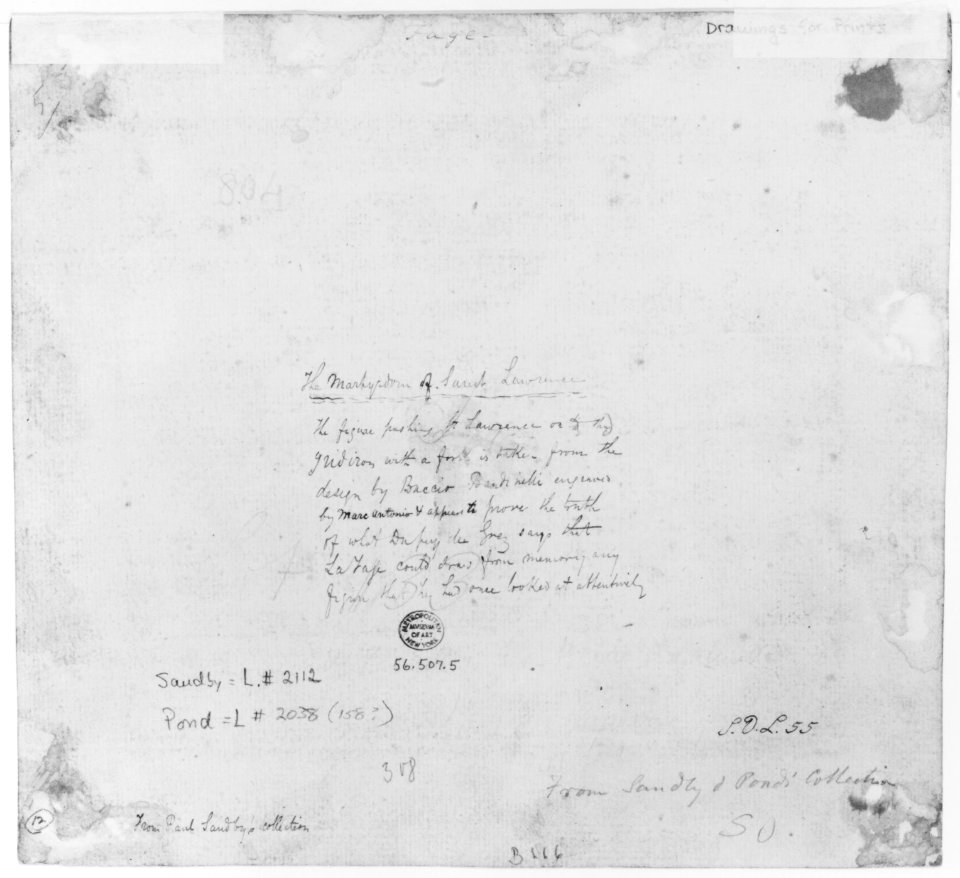 Fage.
Drawings for Prints
804
The Martyrdom of Saint Lawrence
The figure pushing St Lawrence on to the
gridiron with a fork is taken from the
design by Baccio Bandinelli engraved
by Marc Antonio & appears to prove the truth
of what Dupuy du Grez says that
La Fage could draw from memory any
figure that he had once looked at attentively
METROPOLITAN
MUSEUM
OF ART
NEW YORK
56.507.5
Sandby = L.# 2112
Pond = L # 2038 (158?)
S.D.L. 55
308
From Sandby & Ponds Collection
12
From Paul Sandby's collection
B 116